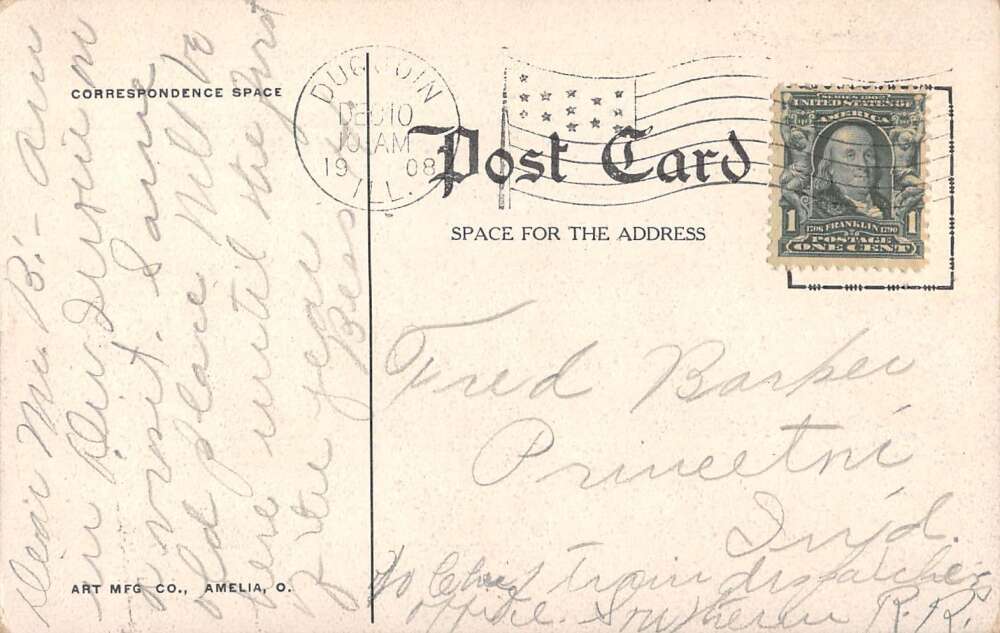 CORRESPONDENCE SPACE
DUQUOIN
DEC 10
10 AM
1908
ILL.
Post Card
SPACE FOR THE ADDRESS
SERIES 1902
UNITED STATES OF
AMERICA
1 1706 FRANKLIN 1790 1
POSTAGE
ONE CENT
Dear Mr B.- Am
in Du Quoin on
a visit. Same
old place Will be
here until the first
of the year
Bess
Fred Barker
Princeton
Ind.
℅ Chief Train dispatcher
office. Southern R.R.
ART MFG CO., AMELIA, O.